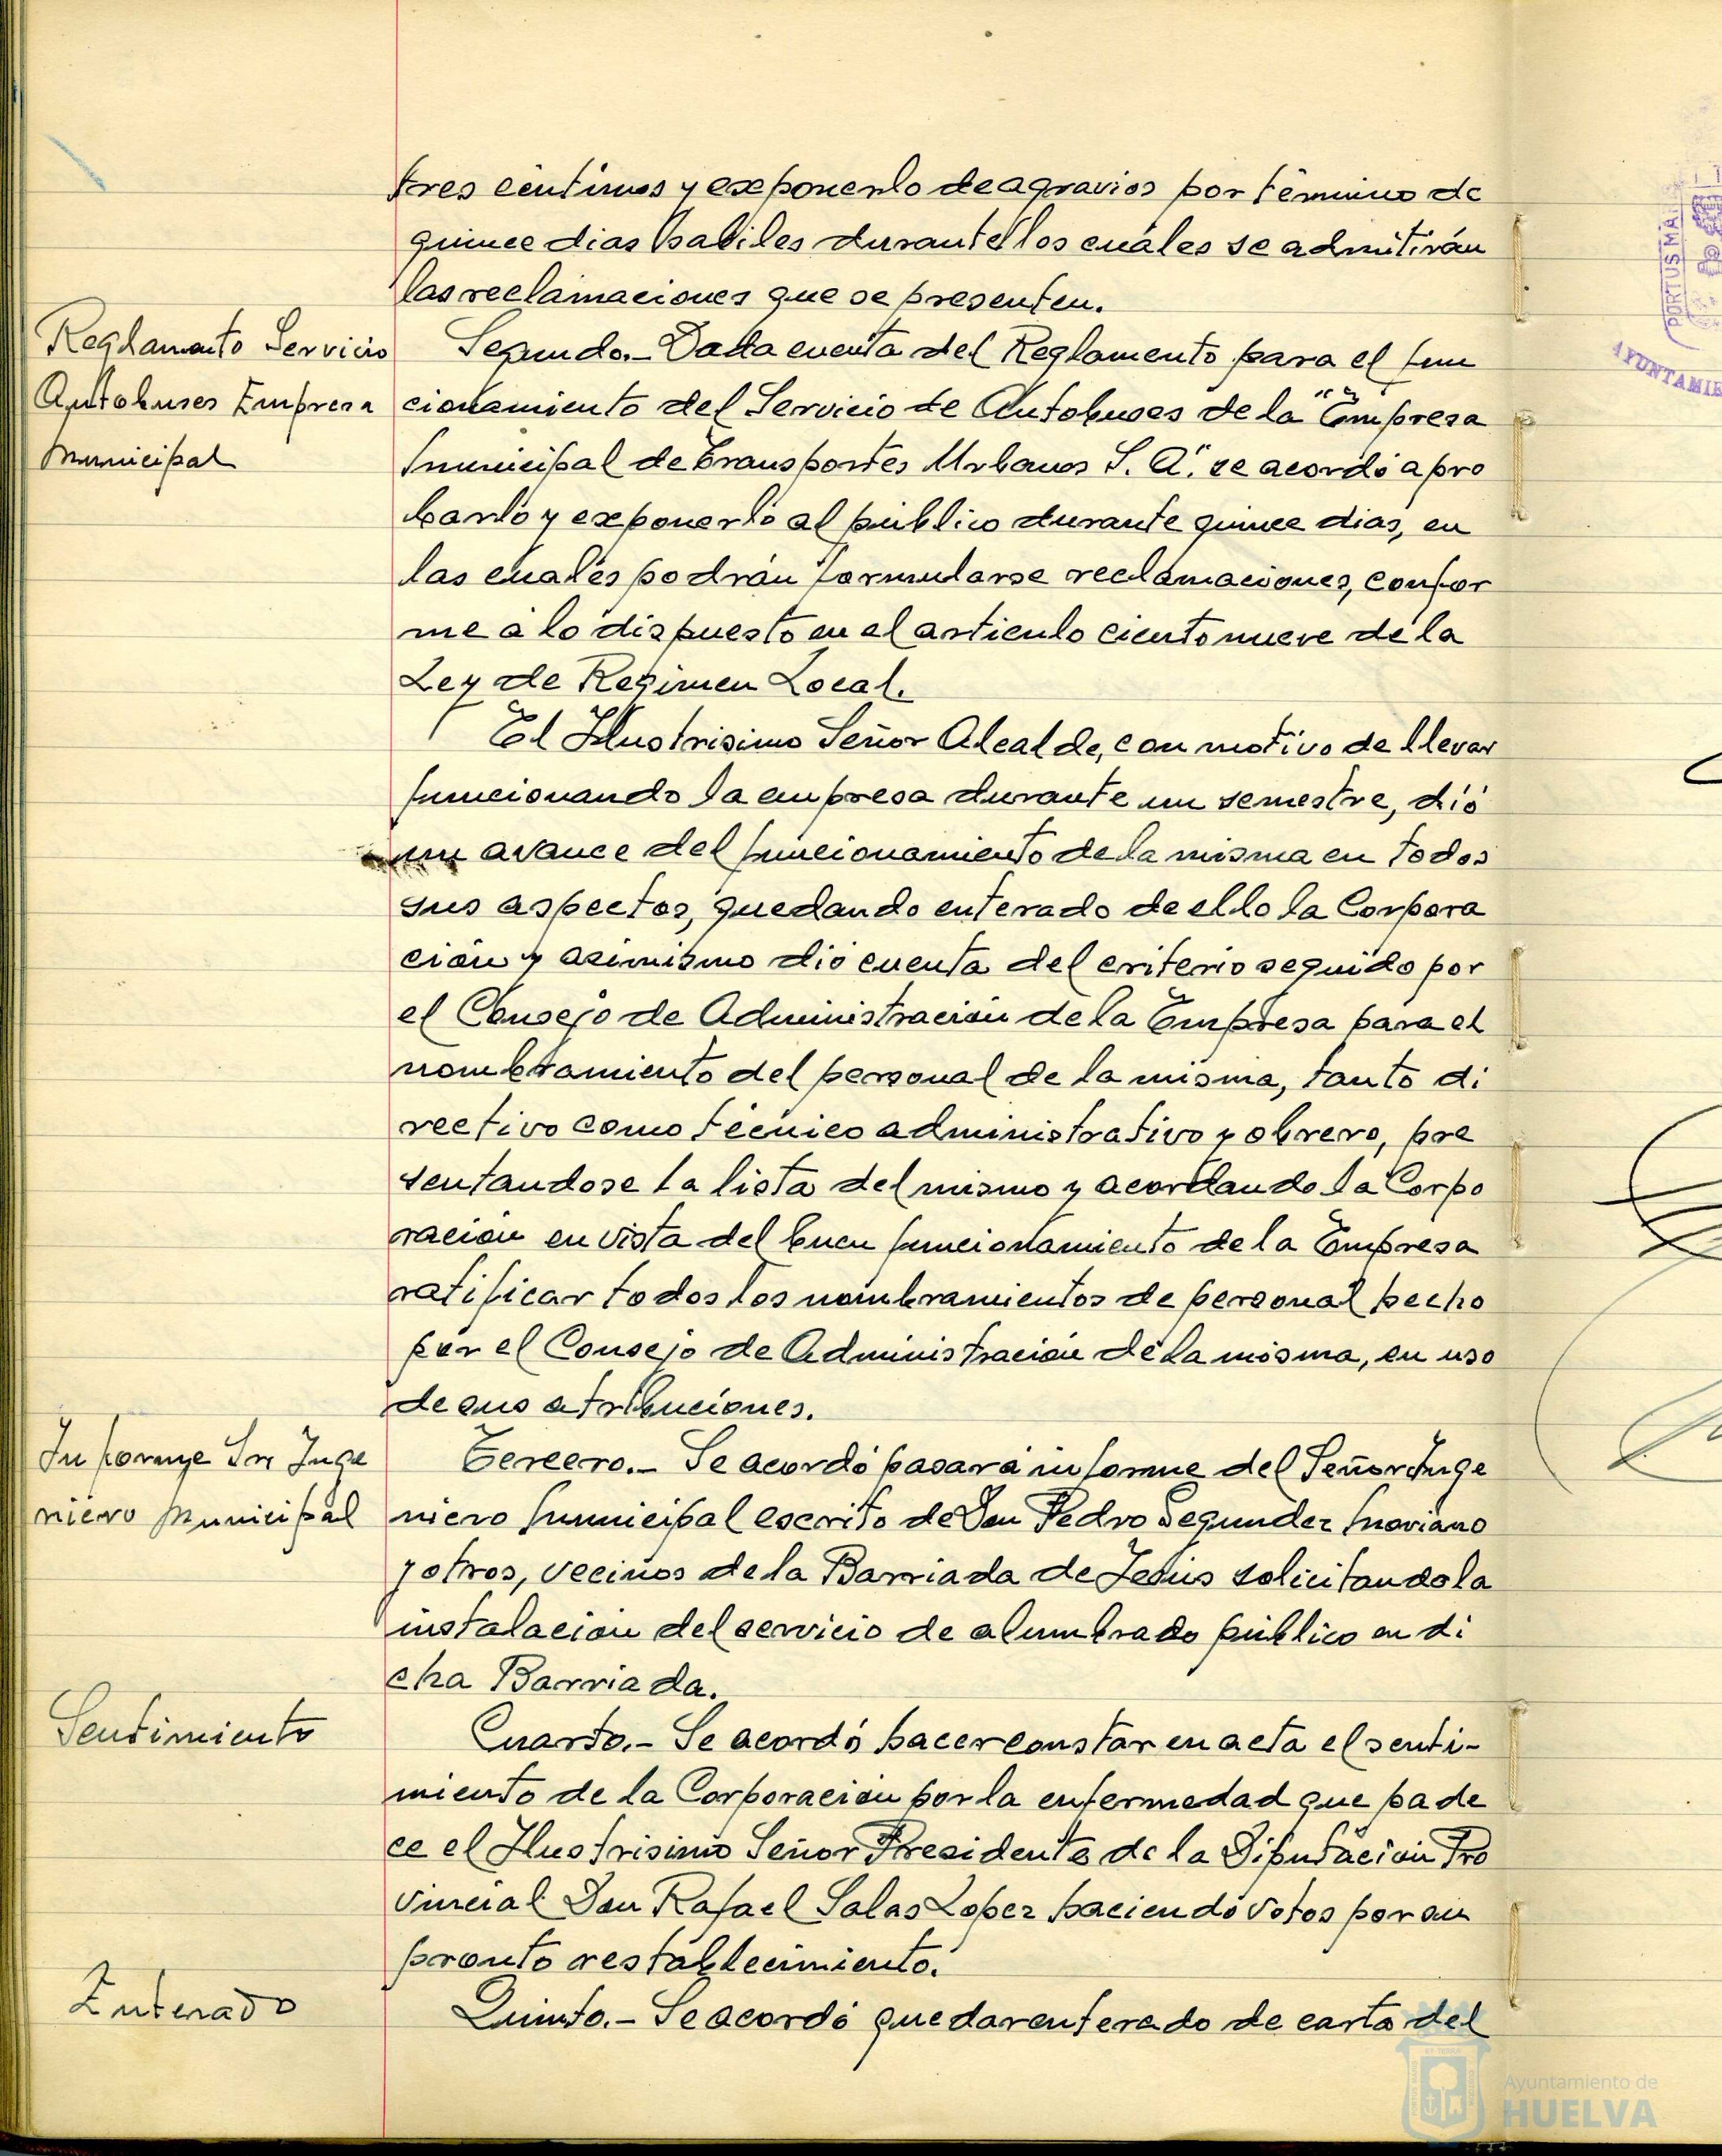 tres centimos y exponerlo de agravios por término de
quince dias habiles durante los cuáles se admitirán
las reclamaciones que se presenten.
Reglamento Servicio
Autobuses Empresa
Municipal
Segundo.- Dada cuenta del Reglamento para el fun
cionamiento del Servicio de Autobuses de la "Empresa
Municipal de Transportes Urbanos S. A". se acordó apro
barlo y exponerlo al público durante quince dias, en
las cuales podrán formularse reclamaciones, confor
me a lo dispuesto en el articulo ciento nueve de la
Ley de Regimen Local.
El Ilustrisimo Señor Alcalde, con motivo de llevar
funcionando la empresa durante un semestre, dió
un avance del funcionamiento de la misma en todos
sus aspectos, quedando enterado de ello la Corpora
ción y asimismo dió cuenta del criterio seguido por
el Consejo de Administración de la Empresa para el
nombramiento del personal de la misma, tanto di
rectivo como técnico administrativo y obrero, pre
sentandose la lista del mismo y acordando la Corpo
ración en vista del buen funcionamiento de la Empresa
ratificar todos los nombramientos de personal hecho
por el Consejo de Administración de la misma, en uso
de sus atribuciones.
Informe Sr Inge
niero Municipal
Tercero.- Se acordó pasar a informe del Señor Inge
niero Municipal escrito de Don Pedro Segundez Moriano
y otros, vecinos de la Barriada de Jesús solicitando la
instalación del servicio de alumbrado público en di
cha Barriada.
Sentimiento
Cuarto.- Se acordó hacer constar en acta el senti-
miento de la Corporación por la enfermedad que pade
ce el Ilustrisimo Señor Presidente de la Diputación Pro
vincial Don Rafael Salas Lopez haciendo votos por su
pronto restablecimiento.
Enterado
Quinto.- Se acordó quedar enterado de carta del
PORTUS MA
AYUNTAMIE
Ayuntamiento de
HUELVA